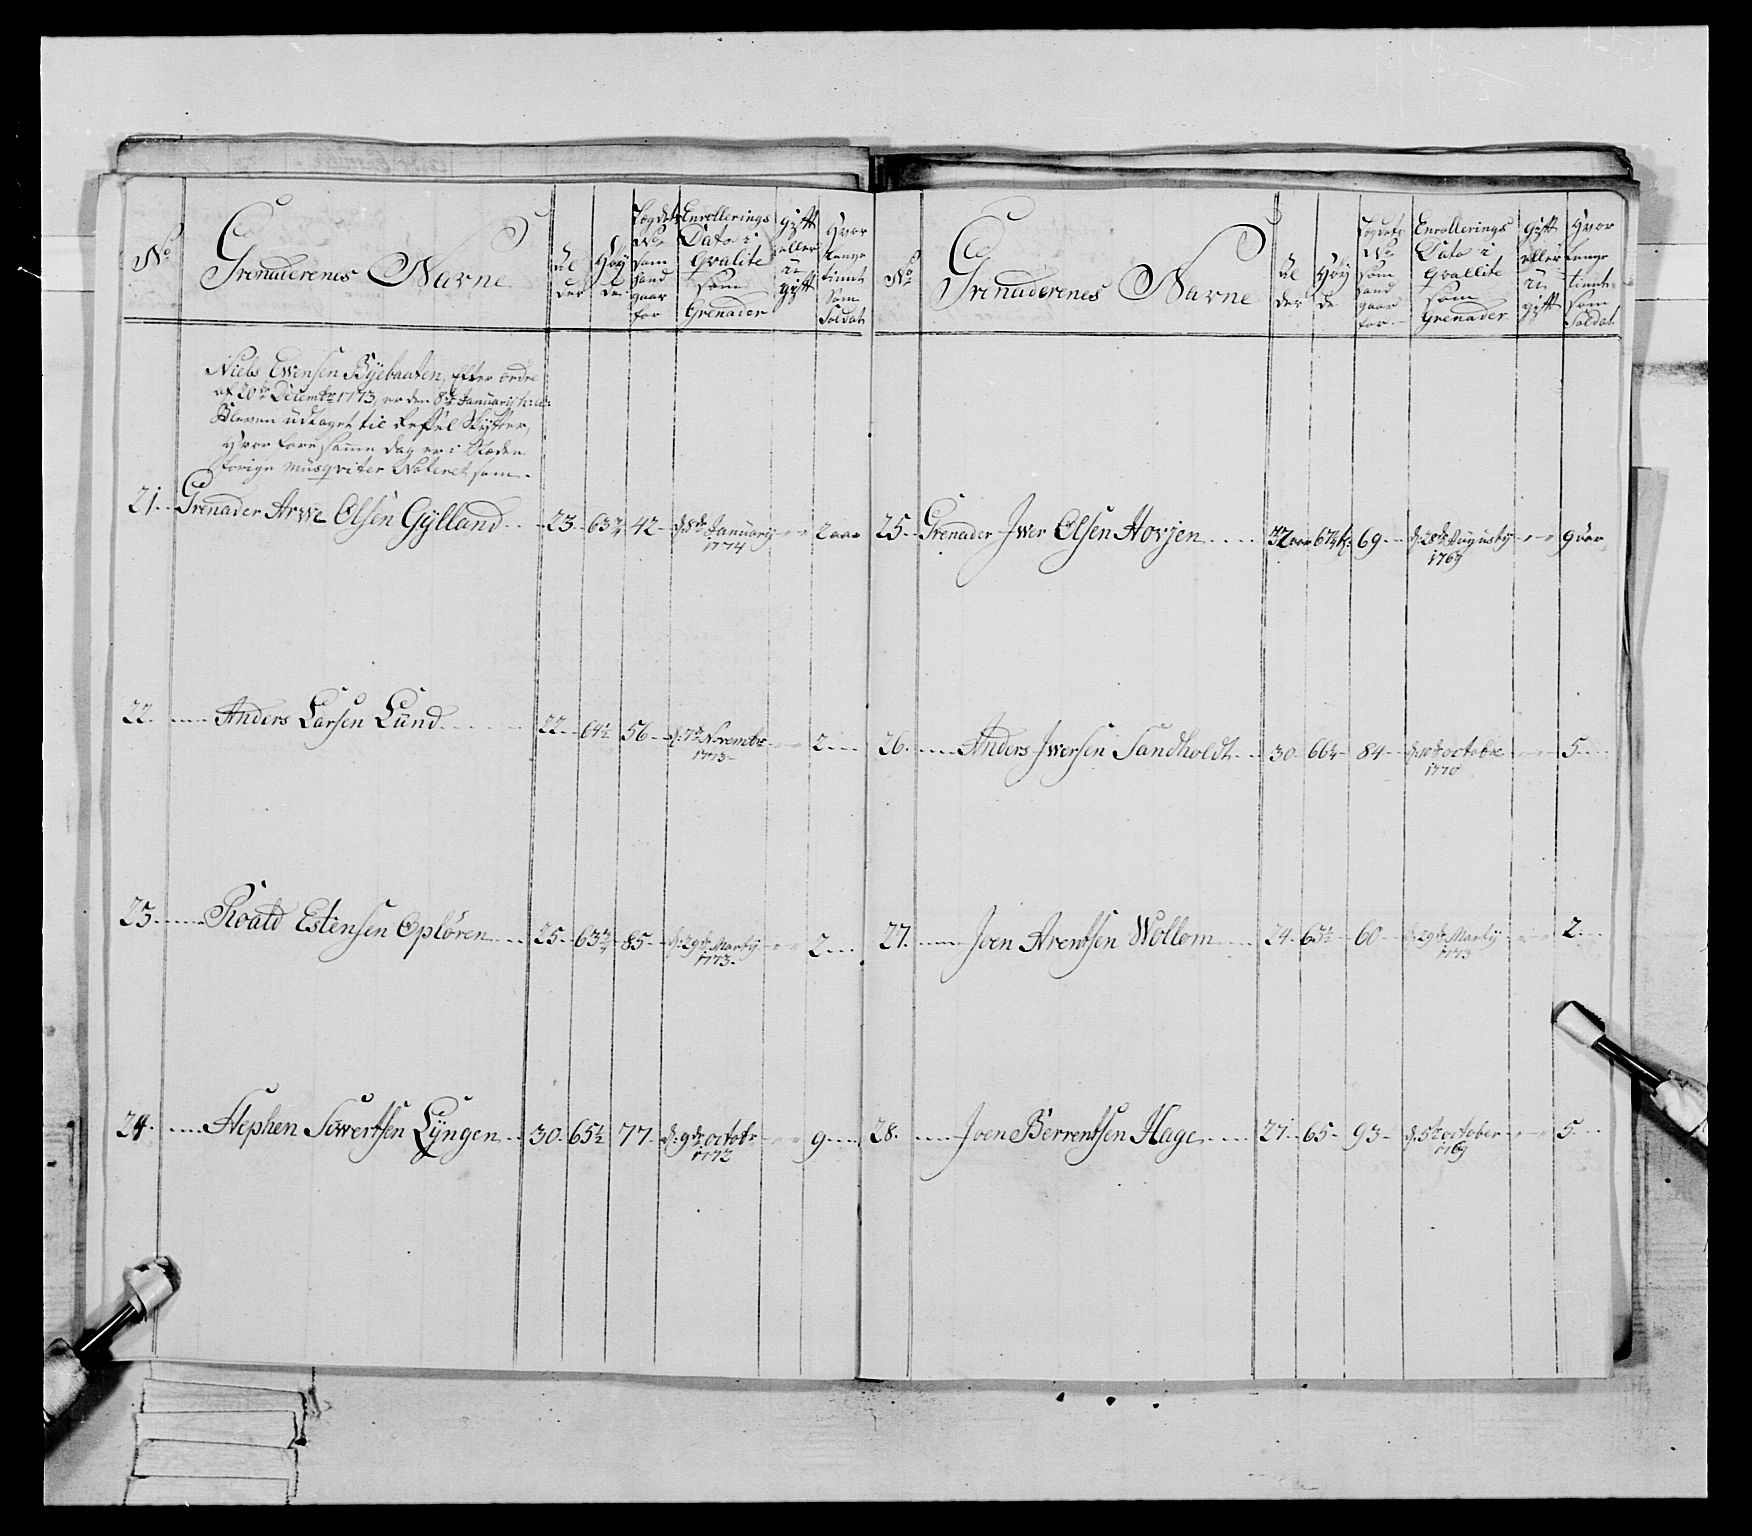 No
Grenaderenes Navne
Al
der
Höy
de
Lægdets
No
som
hand
gaar
for
Enrollerings
Dato i
Qvalite
som
Grenader
Gift
eller
u
gift
Hvor
lenge
tient
som
Soldat
Niels Ewensen Byebaaten, Efter ordre
af 20de Decembr 1773, er den 8de January h: a:
Bleven udtaget til Reffel Skytter,
Hvor fore samme dag er i Steden
forige Musqviter Noteret som
21. Grenader Arwe Olsen Gylland 23 63 3/4 42 d: 8de January 2 aar
1774
22. Anders Larsen Lund 22 64 1/2 56 d: 7de Novembr 2
1773
23 Roald Estensen Oplören 25 63 3/4 85 d: 29de Marty 2
1773
24. Stephen Siwertsen Lyngen 30 65 1/2 77 d: 9de octobr 9
1773
No
Grenaderenes Navne
Al
der
Höy
de
Lægdets
No
som
hand
gaar
for
Enrollerings
Dato i
Qvallite
som
Grenader
Gift
eller
u
gift
Hvor
lenge
tient
som
Soldat
25 Grenader Iwer Olsen Hovjen 32 aar 67 1/4 t: 69 d: 28de Augusty 9 aar
1769
26. Anders Iwersen Sandholdt 30 66 1/4 84 d: 10de octobr 5
1770
27. Joen Arentsen Wollom 24 63 1/2 60 d: 29de Marty 2
1773
28. Joen Berrentsen Hage 27 65 93 d: 5te october 5
1769